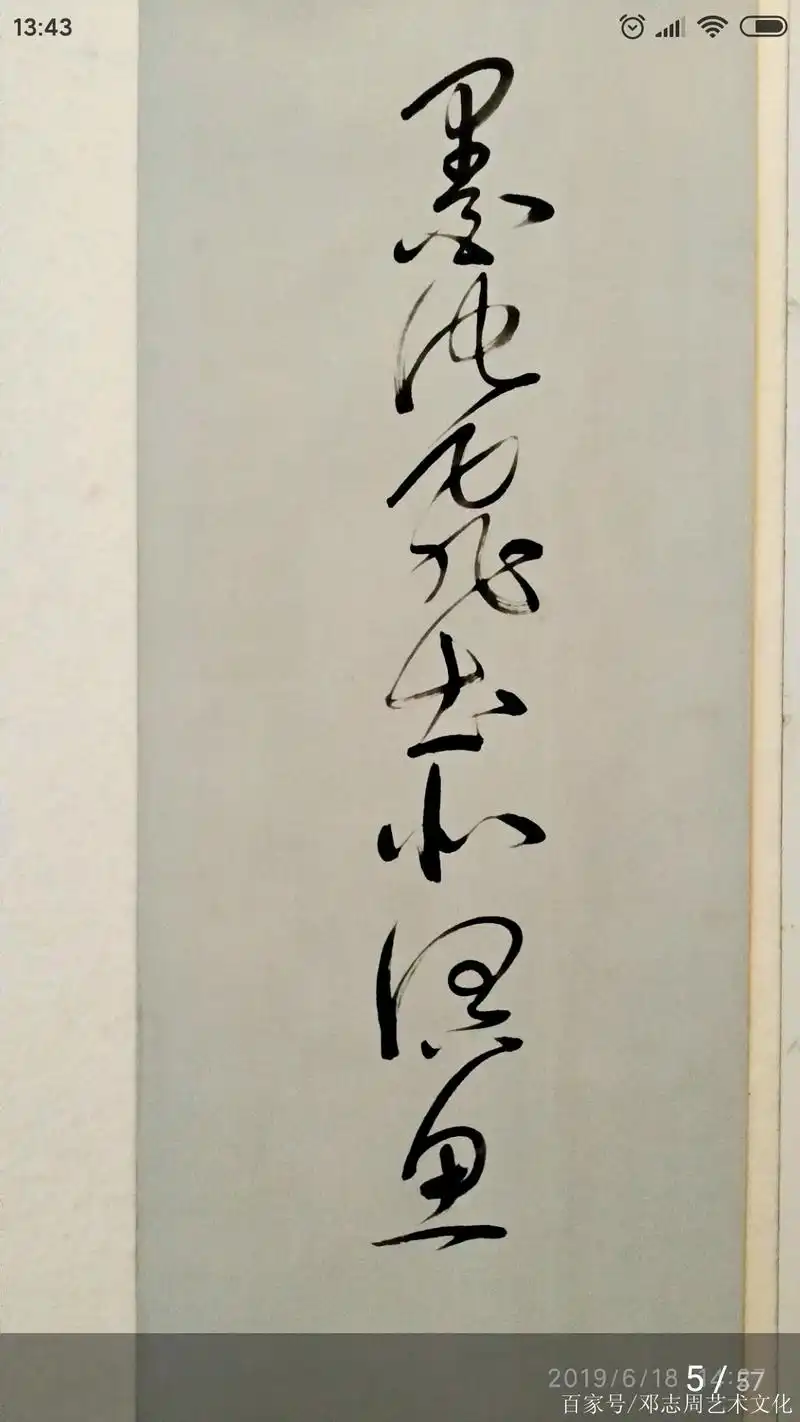 13:43
墨池飛出北溟魚
2019/6/18
5/57
百家号/邓志周艺术文化